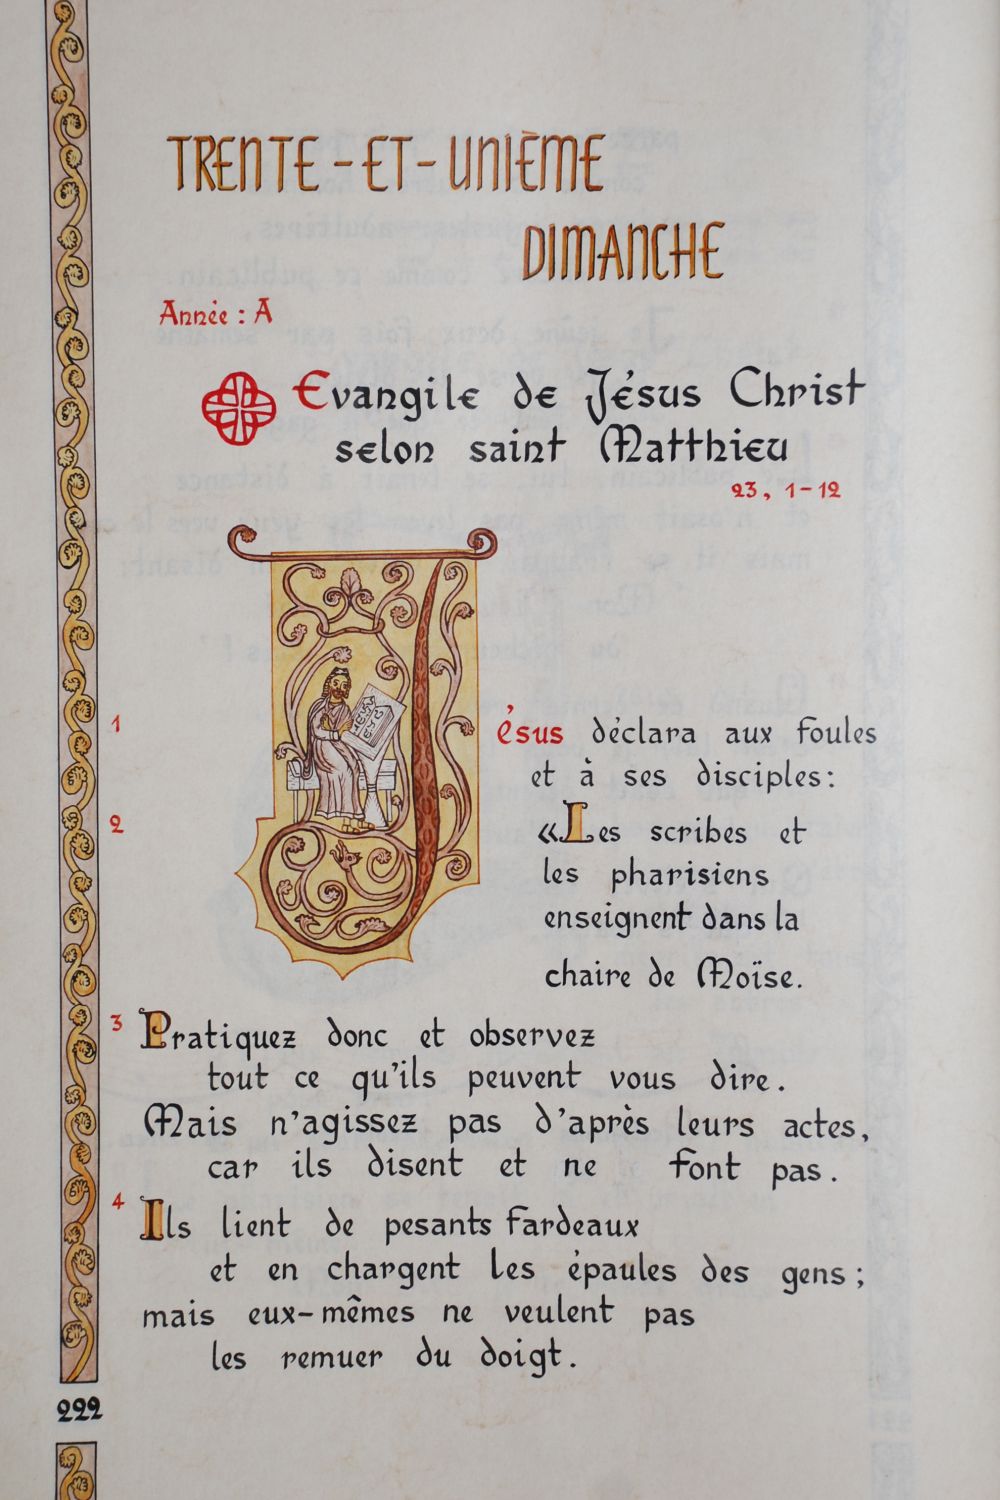 TRENTE-ET-UNIÈME
DIMANCHE
Année : A
Evangile de Jésus Christ
selon saint Matthieu
23, 1-12
1 Jésus déclara aux foules
et à ses disciples:
2 «Les scribes et
les pharisiens
enseignent dans la
chaire de Moïse.
3 Pratiquez donc et observez
tout ce qu'ils peuvent vous dire.
Mais n'agissez pas d'après leurs actes,
car ils disent et ne font pas.
4 Ils lient de pesants fardeaux
et en chargent les épaules des gens;
mais eux-mêmes ne veulent pas
les remuer du doigt.
222